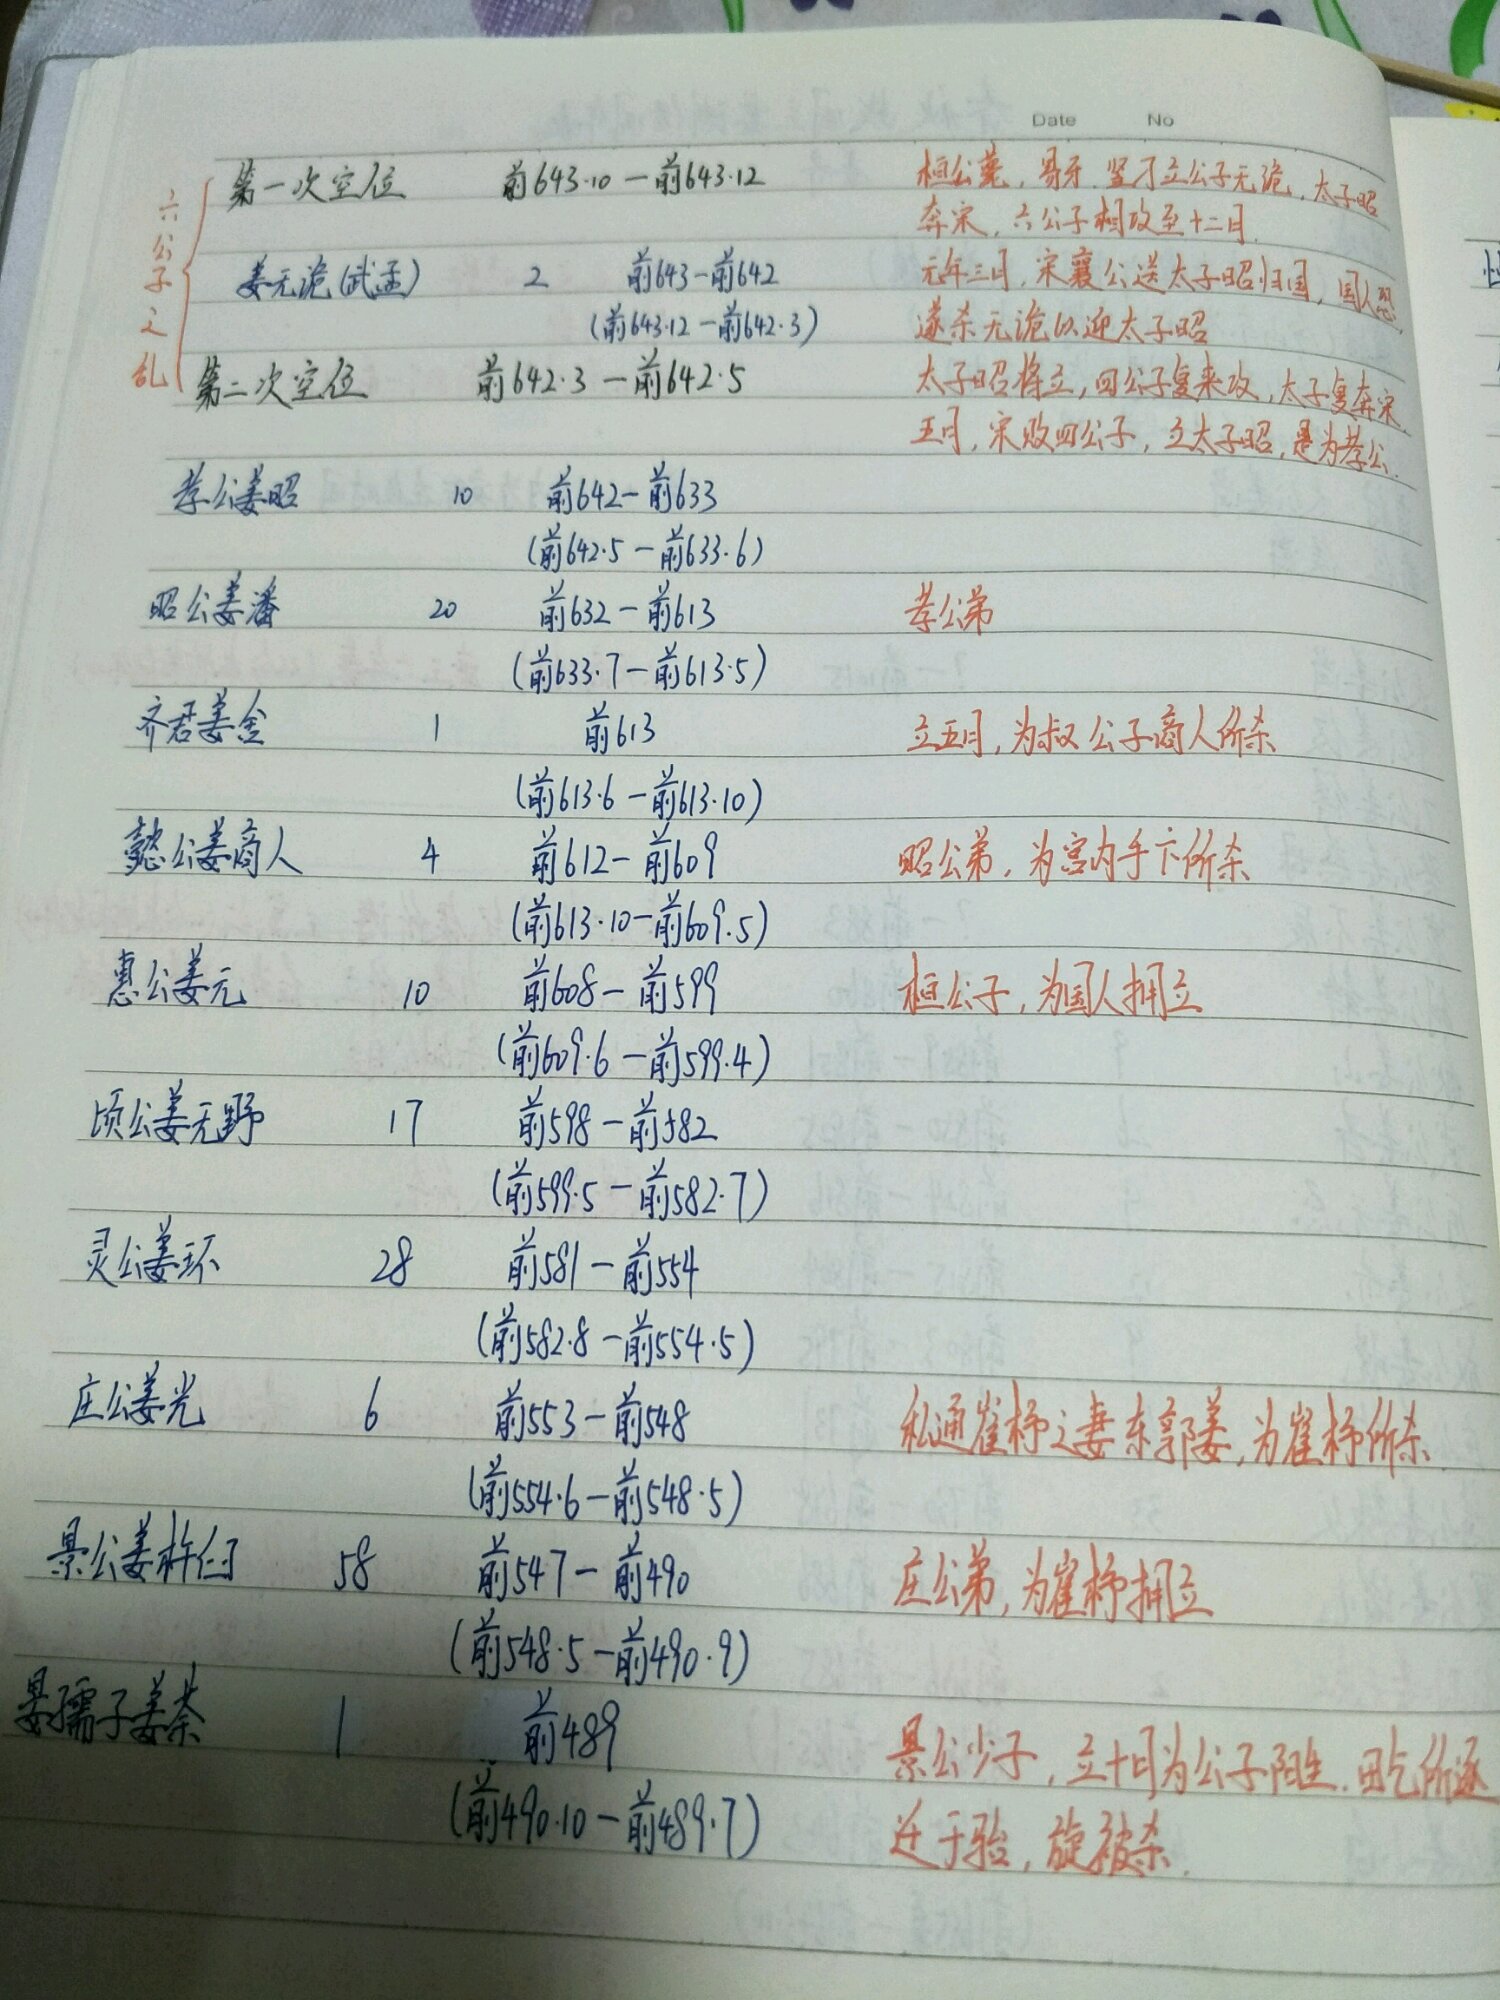 Date No
第一次空位 前643.10—前643.12 桓公薨，易牙.竖刁立公子无诡，太子昭
奔宋，六公子相攻至十二月.
六公子之乱
姜无诡(武孟) 2 前643—前642 元年三月，宋襄公送太子昭归国，国人恐，
(前643.12—前642.3) 遂杀无诡以迎太子昭
第二次空位 前642.3—前642.5 太子昭将立，四公子复来攻，太子复奔宋.
五月，宋败四公子，立太子昭，是为孝公.
孝公姜昭 10 前642—前633
(前642.5—前633.6)
昭公姜潘 20 前632—前613 孝公弟
(前633.7—前613.5)
齐君姜舍 1 前613 立五月，为叔公子商人所杀
(前613.6—前613.10)
懿公姜商人 4 前612—前609 昭公弟，为宫内手下所杀
(前613.10—前609.5)
惠公姜元 10 前608—前599 桓公子，为国人拥立
(前609.6—前599.4)
顷公姜无野 17 前598—前582
(前599.5—前582.7)
灵公姜环 28 前581—前554
(前582.8—前554.5)
庄公姜光 6 前553—前548 私通崔杼之妻东郭姜，为崔杼所杀.
(前554.6—前548.5)
景公姜杵臼 58 前547—前490 庄公弟，为崔杼拥立
(前548.5—前490.9)
晏孺子姜荼 1 前489 景公少子，立十月为公子阳生.田乞所逐
(前490.10—前489.7) 迁于骀，旋被杀.